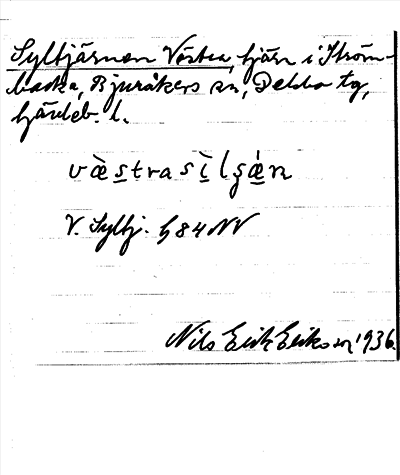 Syltjärnen Västra, tjärn i Ström-
backa, Bjuråkers sn, Delsbo tg,
Gävleb. l.
væ̀stra sìlʂæ̀n
V. Syltj. G84NV
Nils Erik Eriksson 1936.